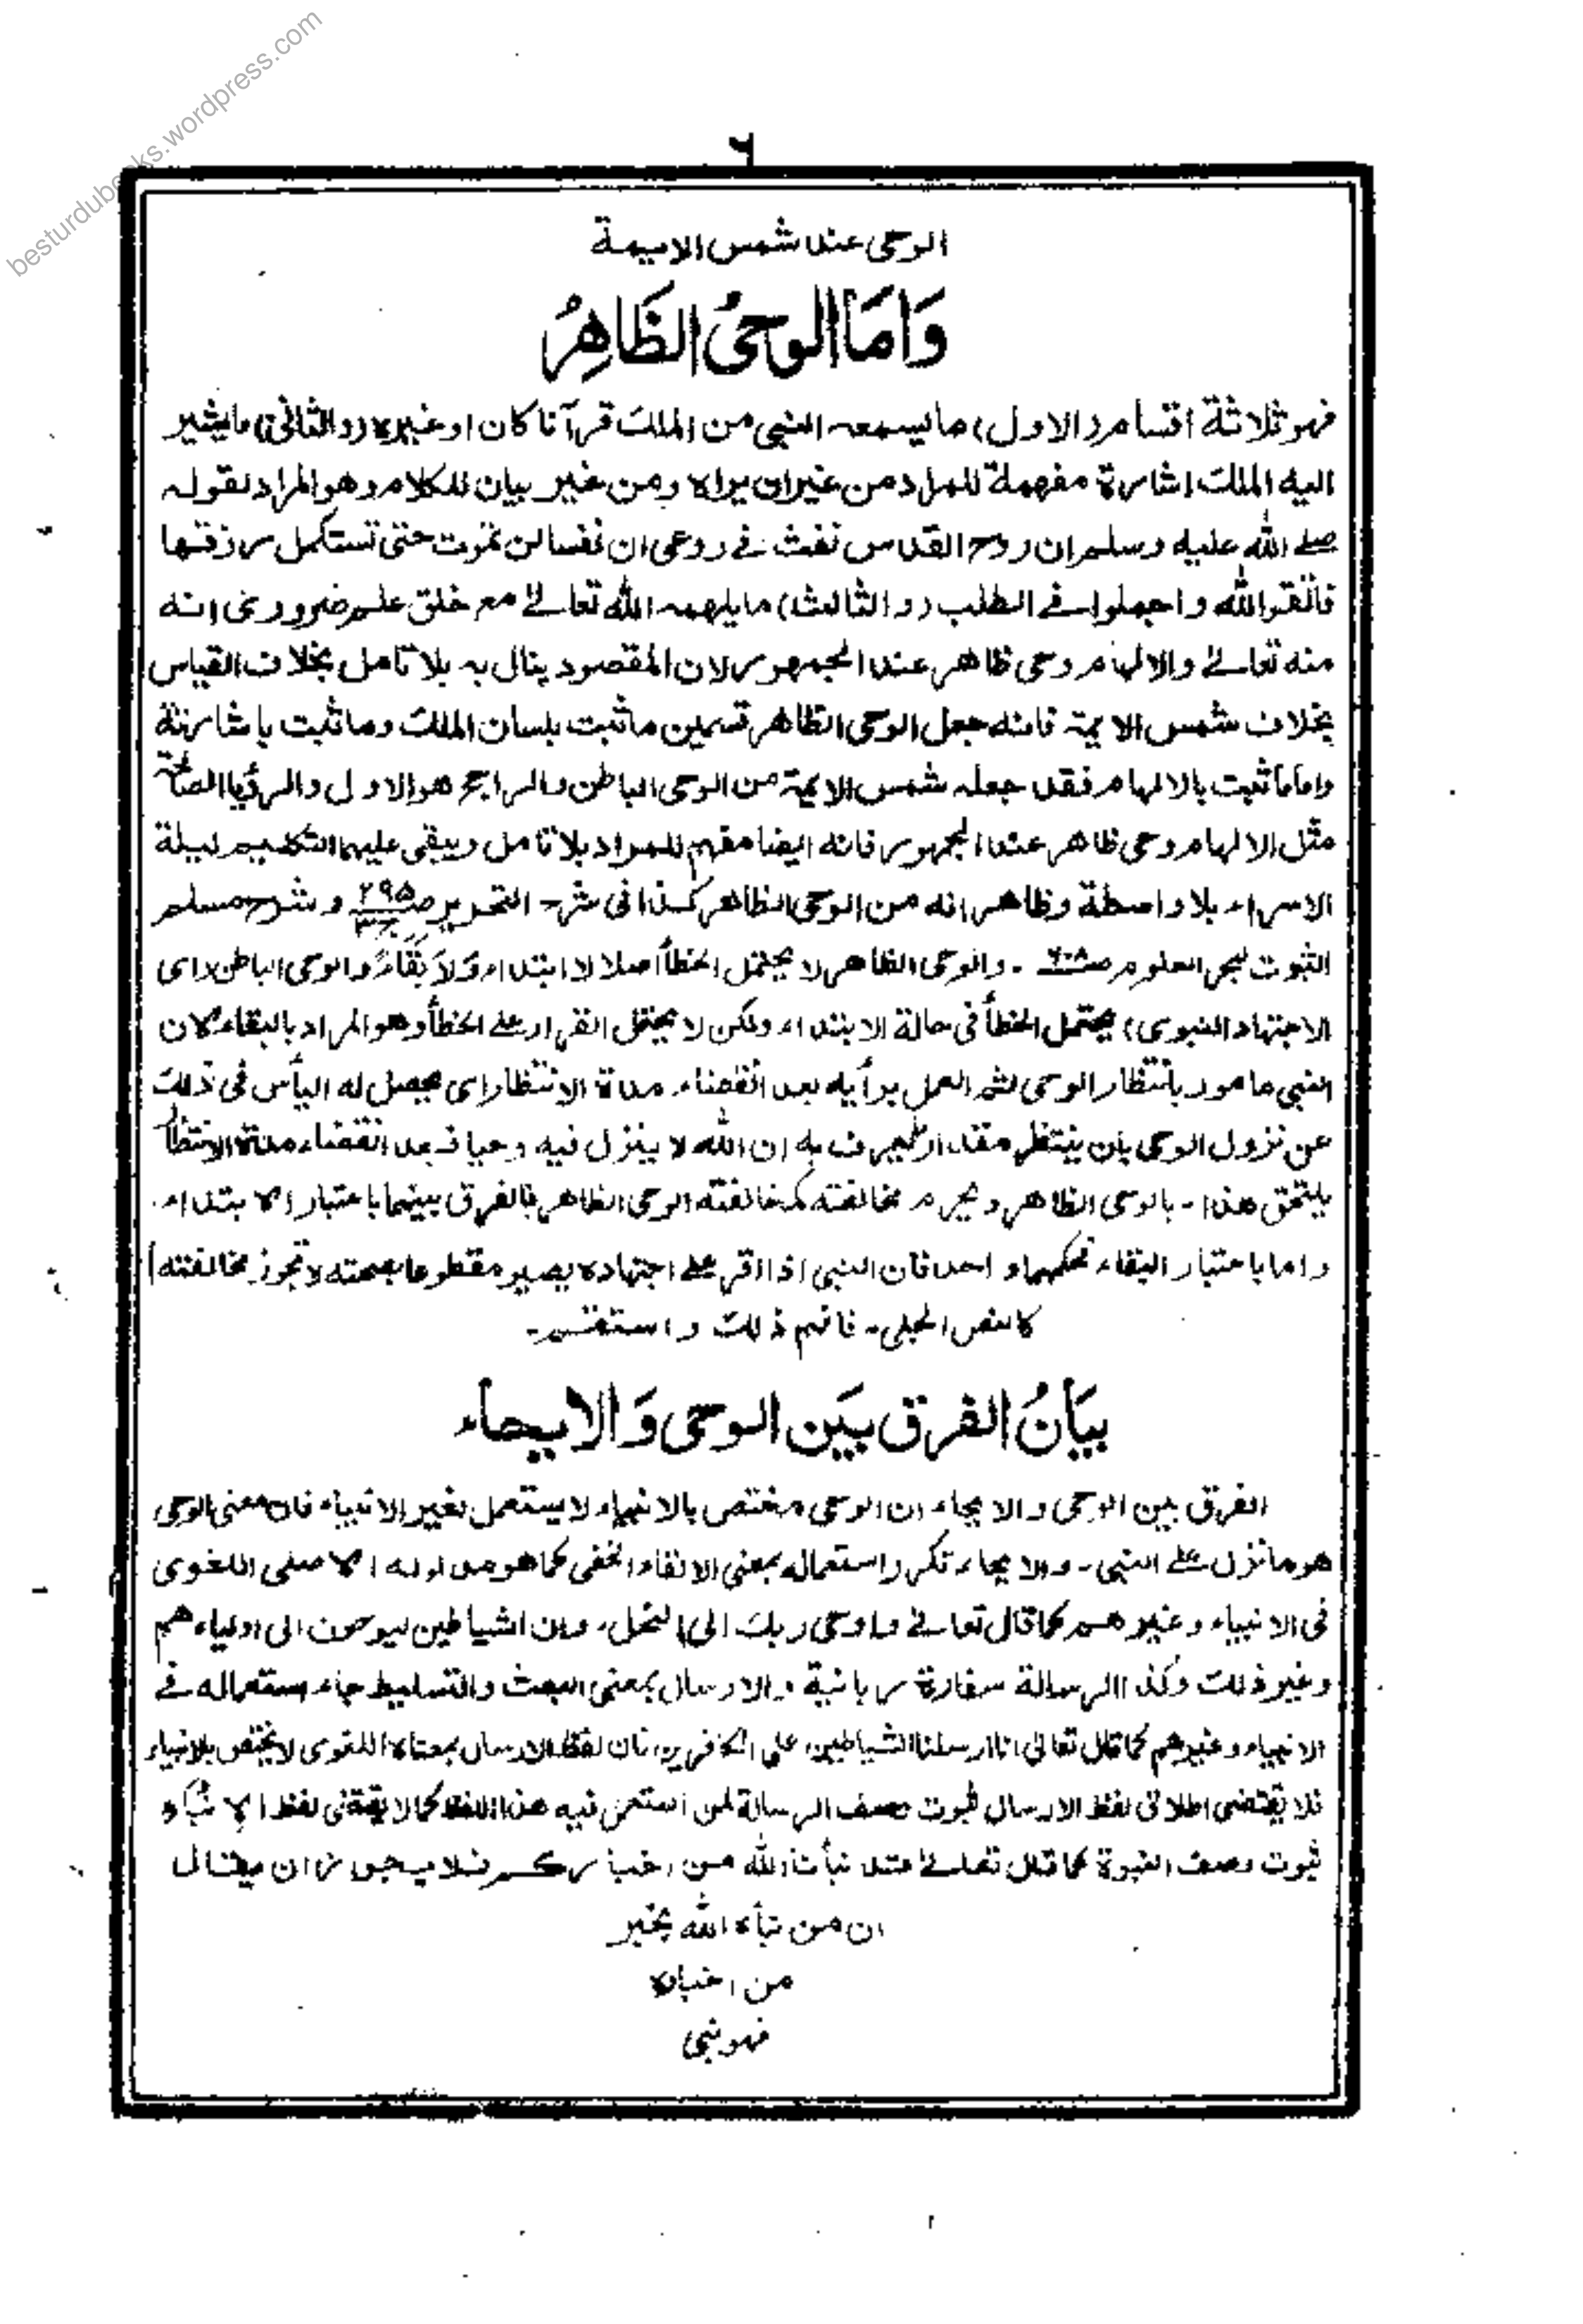 besturdubooks.wordpress.com
٦
الوحی عند شمس الایمة
وَاَمَّا الوحیُ الظَاهِرُ
فهو ثلاثة اقسام (الاول) ما یسمعه النبی من الملك قرآنا کان او غیره (والثانی) ما یشیر
الیه الملك اشارة مفهمة للمراد من غیر ان یراه ومن غیر بیان للکلام وهو المراد لقوله
صلے الله علیه وسلم ان روح القدس نفث فے روعی ان نفسا لن تموت حتی تستکمل رزقها
فاتقوا الله واجملوا فے الطلب (والثالث) ما یلهمه الله تعالےٰ مع خلق علم ضروری انه
منه تعالےٰ والالهام وحی ظاهر عند الجمهور لان المقصود ینال به بلا تامل بخلاف القیاس
بخلاف شمس الایمة فانه جعل الوحی الظاهر قسمین ما ثبت بلسان الملك وما ثبت باشارته
واما ما ثبت بالالهام فقد جعله شمس الایمة من الوحی الباطن والراجح هو الاول والرؤیا الصالحة
مثل الالهام وحی ظاهر عند الجمهور فانه ایضا مفهم للمراد بلا تامل ویبقی علیهما التکلیم لیلة
الاسراء بلا واسطة وظاهر انه من الوحی الظاهر کذا فی شرح التحریر ص ۲۹۵ وشرح مسلم
الثبوت لبحر العلوم . والوحی الظاهر لا یحتمل الخطأ اصلا لا ابتداء وَلَا بَقَاءً والوحی الباطن (ای
الاجتهاد النبوی) یحتمل الخطأ فی حالة الابتداء ولکن لا یحتمل القرار علے الخطأ وهو المراد بالبقاء کان
النبی مامور بانتظار الوحی ثم العمل برأیه بعد انقضاء مدة الانتظار ای یحصل له الیأس فی ذلك
عن نزول الوحی بان ینتظر مقدار یعرف به ان الله لا ینزل فیه وحیا فبعد انقضاء مدة الانتظار
یلتحق هذا - بالوحی الظاهر ویحرم مخالفته کمخالفته الوحی الظاهر فالفرق بینهما باعتبار الابتداء .
واما باعتبار البقاء فحکمهما واحد فان النبی اذا اقر علے اجتهاده یصیر مقطوعا بصحته لا تجوز مخالفته
کالنص الجلی - فافهم ذلك واستقم -
بیَانُ الفرق بیَن الوحی وَالایحاء
الفرق بین الوحی والایحاء ان الوحی مختص بالانبیاء لا یستعمل لغیر الانبیاء فان معنی الوحی
هو ما نزل علے النبی - والایحاء تکرر استعماله بمعنی الالقاء الخفی کما هو مدلوله الاصلی اللغوی
فی الانبیاء وغیرهم کما قال تعالےٰ واوحی ربك الی النحل، وان الشیاطین لیوحون الی اولیاءهم
وغیر ذلك وکذا الرسالة سفارة ربانیة والارسال بمعنی البعث والتسلیط جاء استعماله فے
الانبیاء وغیرهم کما قال تعالیٰ انا ارسلنا الشیاطین علی الکافرین فان لفظ الارسال بمعناه اللغوی لا یختص بالانبیاء
فلا یقتضی اطلاق لفظ الارسال ثبوت وصف الرسالة لمن استعمل فیه هذا اللفظ کما لا یقتضی لفظ الانباء
ثبوت وصف النبوة کما قال تعالےٰ قد نبأنا الله من اخبارکم فلا یجوز ان یقال
ان من نبأه الله بخبر
من اخباره
فهو نبی